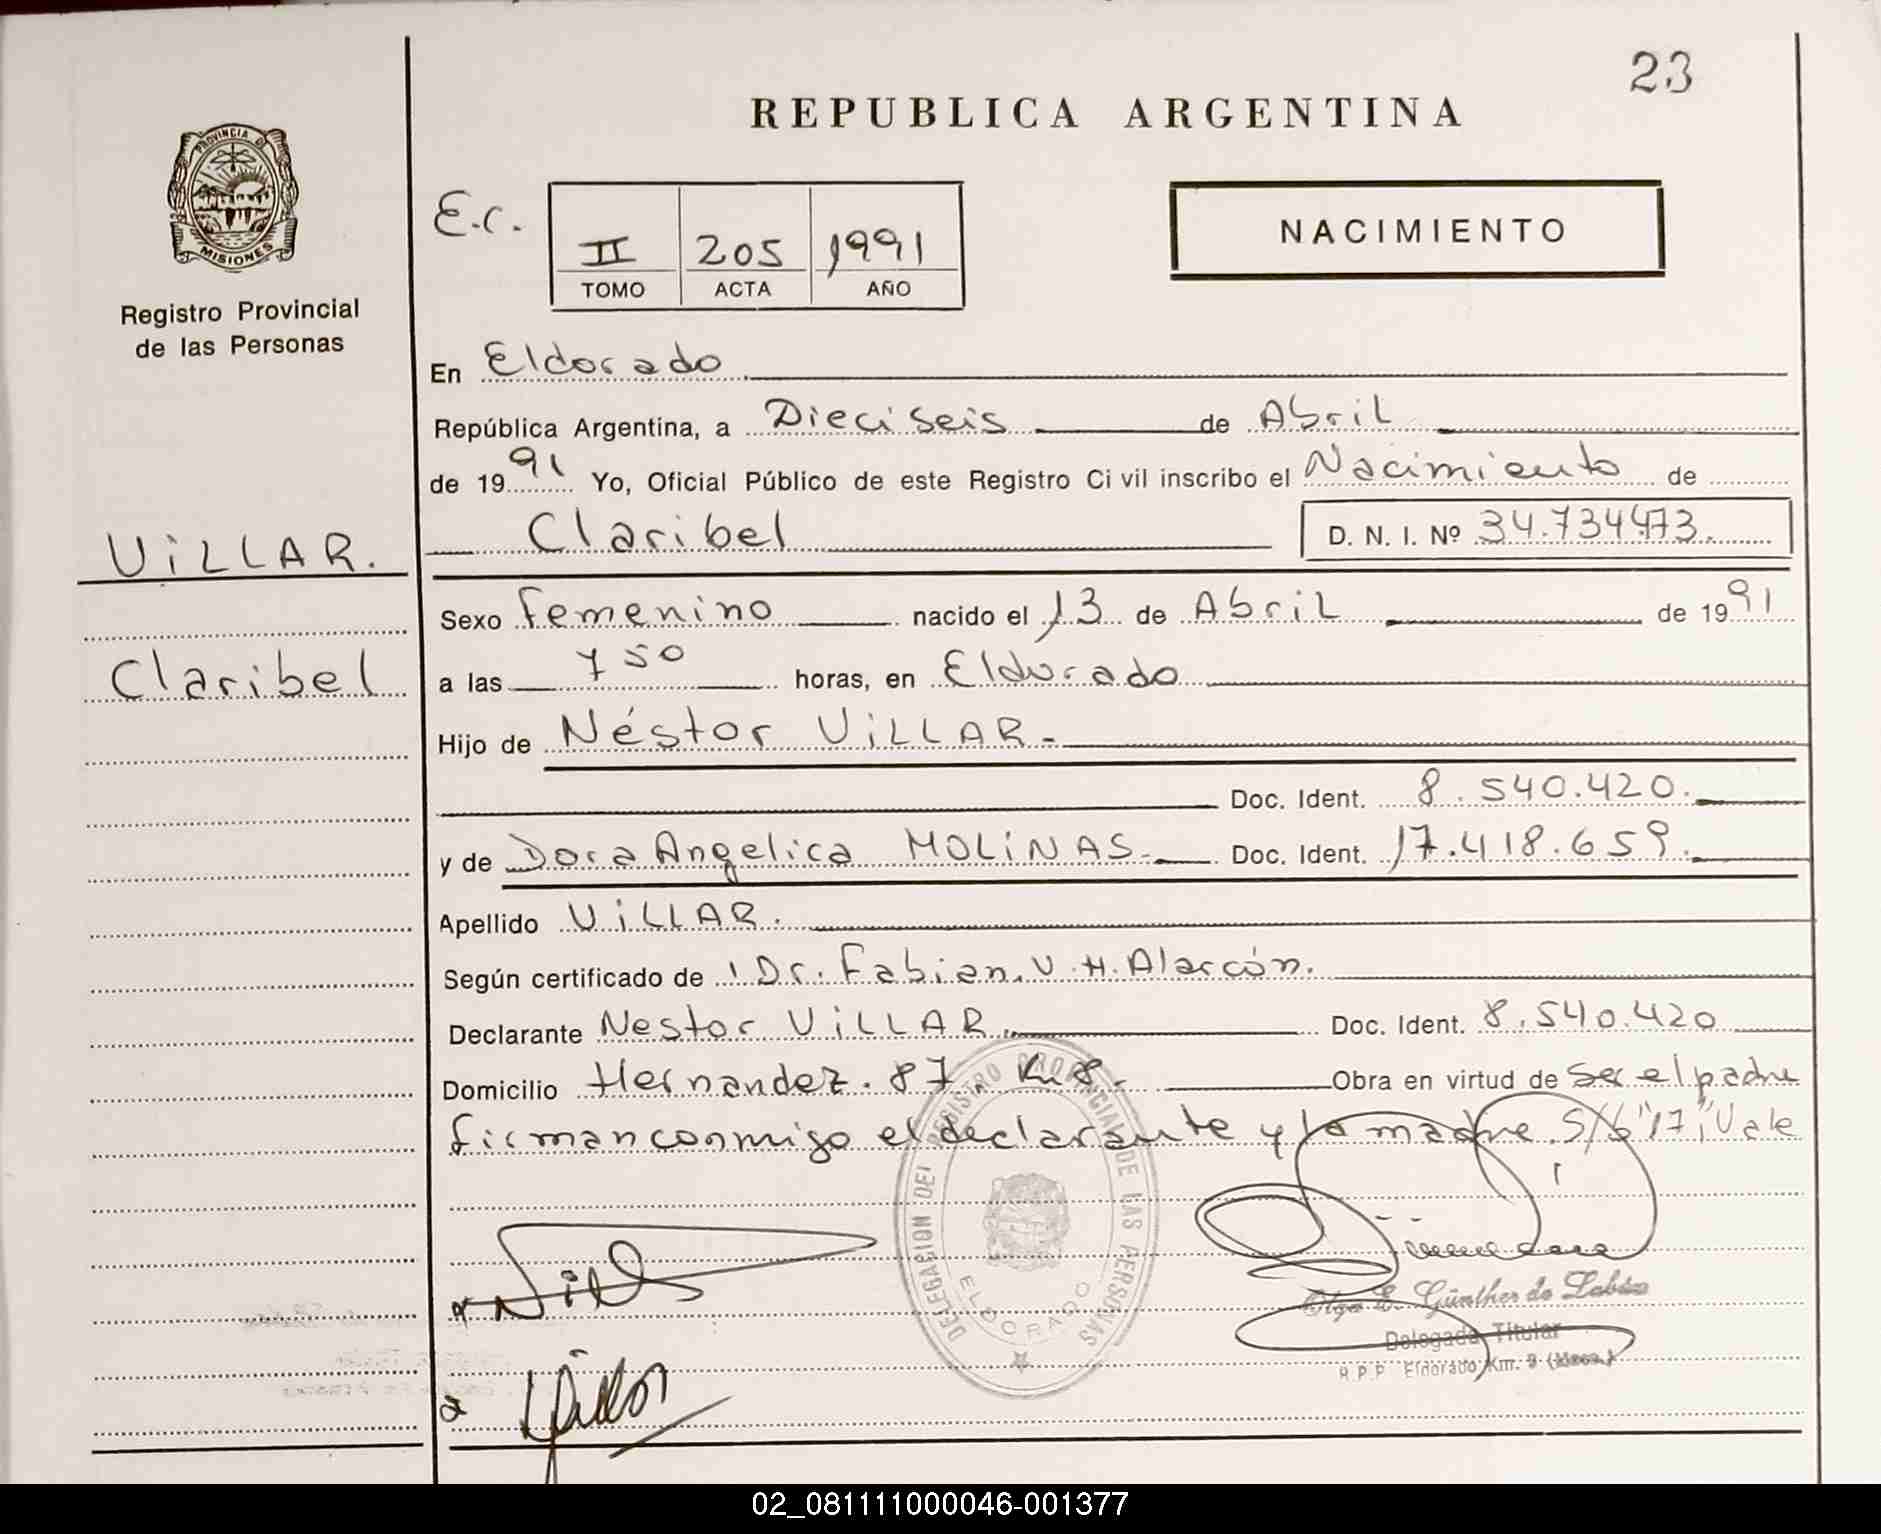 23
REPUBLICA ARGENTINA
PROVINCIA DE
MISIONES
Registro Provincial
de las Personas
E.C.
II 205 1991
TOMO ACTA AÑO
NACIMIENTO
En Eldorado
República Argentina, a Dieciseis de Abril
de 1991 Yo, Oficial Público de este Registro Civil inscribo el Nacimiento de
Claribel D. N. I. Nº
VILLAR.
Sexo Femenino nacido el 13 de Abril de 1991
Claribel
a las 7 50 horas, en Eldorado
Hijo de Néstor VILLAR.-
Doc. Ident. 8.540.420.
y de Dora Angelica MOLINAS.- Doc. Ident. 17.418.659.
Apellido VILLAR.
Según certificado de Dr. Fabian. V. H. Alarcón.
Declarante Nestor VILLAR. Doc. Ident. 8.540.420
Domicilio Hernandez. 87. Km 8.- Obra en virtud de ser el padre
firman conmigo el declarante y la madre. S/b "17", Vale
DELEGACION DEL REGISTRO PROVINCIAL DE LAS PERSONAS
ELDORADO
Olga E. Günther de
Delegada Titular
R.P.P. Eldorado Km. 9
02_081111000046-001377